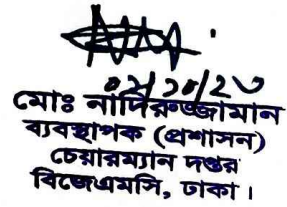 ০২/১০/২৩
মোঃ নাদিরুজ্জামান
ব্যবস্থাপক (প্রশাসন)
চেয়ারম্যান দপ্তর
বিজেএমসি, ঢাকা।